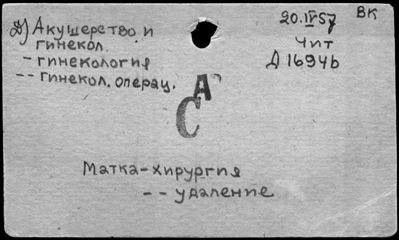 Д) Акушерство и
гинекол.
- гинекология
-- гинекол. операц.
20.IV57
ВК
Чит
Д1694b
А
С
Матка-хирургия
-- удаление